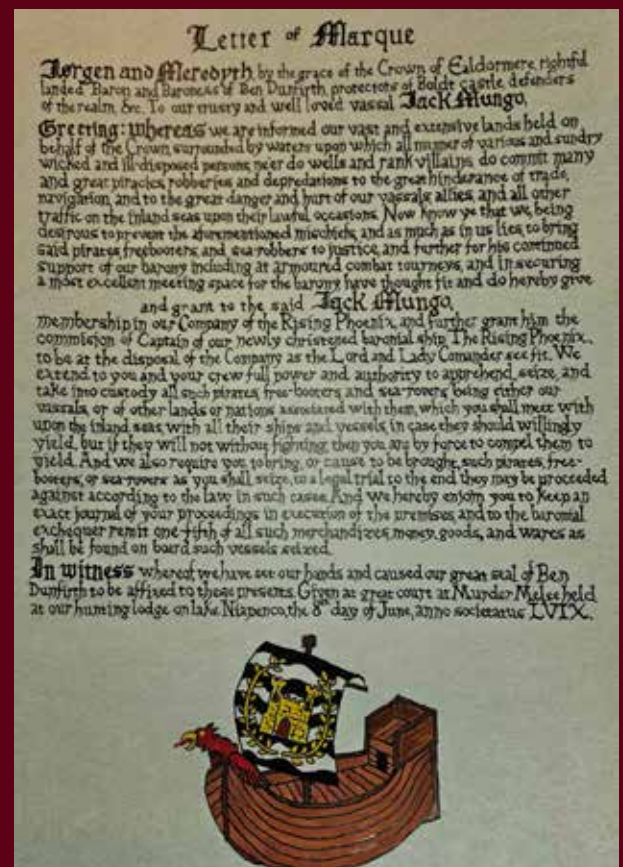 Letter of Marque
Jorgen and Meredyth, by the grace of the Crown of Ealdormere, rightful
landed Baron and Baroness of Ben Dunfirth, protectors of Boldt castle, defenders
of the realm, &c. To our trusty and well loved vassal Jack Mungo,
Greeting: Whereas we are informed our vast and extensive lands held on
behalf of the Crown, surrounded by waters upon which all manner of various and sundry
wicked and ill-disposed persons, ne'er do wells and rank villains do commit many
and great piracies, robberies and depredations to the great hinderance of trade,
navigation, and to the great danger and hurt of our vassals, allies, and all other
traffic on the inland seas upon their lawful occasions. Now know ye that we, being
desirous to prevent the aforementioned mischiefs, and as much as in us lies, to bring
said pirates, freebooters, and sea-robbers to justice, and further for his continued
support of our barony including at armoured combat tourneys, and in securing
a most excellent meeting space for the barony, have thought fit and do hereby give
and grant to the said Jack Mungo,
membership in our Company of the Rising Phoenix, and further grant him the
commision of Captain of our newly christened baronial ship, The Rising Phoenix,
to be at the disposal of the Company as the Lord and Lady Comander see fit. We
extend to you and your crew full power and authority to apprehend, seize, and
take into custody all such pirates, free-booters, and sea-rovers, being either our
vassals, or of other lands or nations associated with them, which you shall meet with
upon the inland seas, with all their ships and vessels, in case they should willingly
yield, but if they will not without fighting, then you are by force to compel them to
yield. And we also require you to bring, or cause to be brought, such pirates, free-
booters, or sea-rovers as you shall seize, to a legal trial to the end they may be proceeded
against according to the law in such cases. And we hereby enjoin you to keep an
exact journal of your proceedings in execution of the premises, and to the baronial
exchequer remit one-fifth of all such merchandizes, money, goods, and wares as
shall be found on board such vessels seized.
In witness whereof, we have set our hands and caused our great seal of Ben
Dunfirth to be affixed to these presents. Given at great court at Murder Melee held
at our hunting lodge on lake Niapenco, the 8th day of June, anno societatus LVIX.